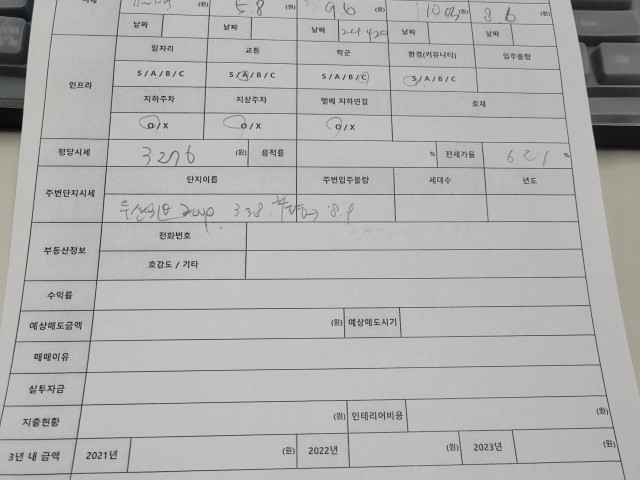 (원) 5 8 (원) 9.6 (원) (원) 8.6 (원)
날짜 날짜 날짜 날짜 날짜
인프라
일자리 교통 학군 환경(커뮤니티) 입주물량
S / A / B / C S / A / B / C S / A / B / C S / A / B / C
지하주차 지상주차 엘베 지하연결 호재
O / X O / X O / X
평당시세 3276 (원) 용적률 % 전세가율 62.1 %
주변단지시세 단지이름 주변입주물량 세대수 년도
338
부동산정보 전화번호
호감도 / 기타
수익률
예상매도금액 (원) 예상매도시기
매매이유
실투자금
지출현황 (원) 인테리어비용 (원)
3년 내 금액 2021년 (원) 2022년 (원) 2023년 (원)